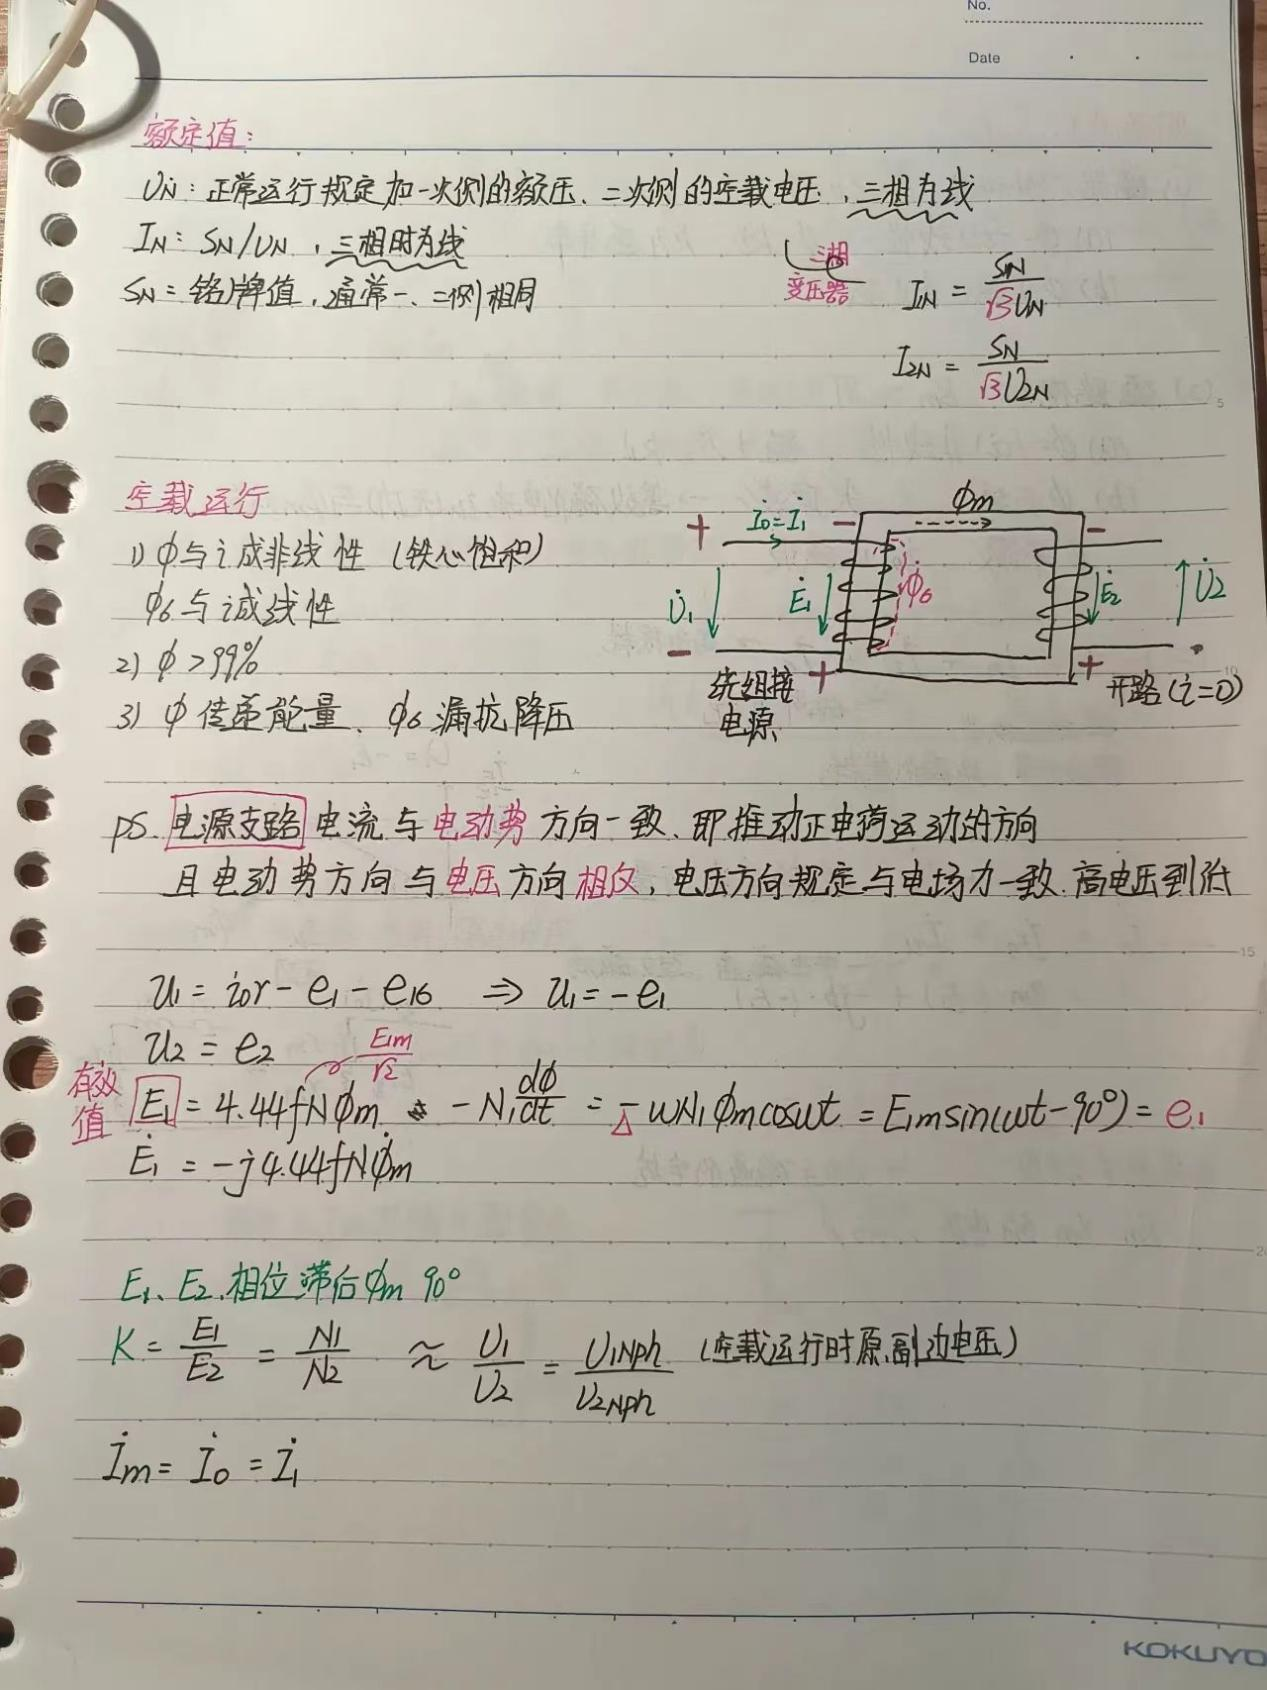 No.
Date
额定值:
UN: 正常运行规定加一次侧的额压、二次侧的空载电压,三相为线
IN: SN/UN,三相时为线
SN= 铭牌值,通常一、二侧相同
三相
变压器
IN = SN/√3UN
I2N = SN/√3U2N
空载运行
1) ϕ与i成非线性 (铁心饱和)
ϕ6与i成线性
2) ϕ>99%
3) ϕ传递能量、ϕ6漏抗降压
+ İ0=İ1 − ϕm −
U̇1 Ė1 ϕ̇6 Ė2 U̇2
− + +
绕组接
电源
开路(i=0)
ps. 电源支路 电流与电动势方向一致、即推动正电荷运动的方向
且电动势方向与电压方向相反,电压方向规定与电场力一致.高电压到低
u1 = i0r − e1 − e16 ⇒ u1=−e1
u2 = e2
E1m/√2
有效
值
E1 = 4.44fNϕm −N1dϕ/dt = −ωN1ϕmcosωt = E1msin(ωt−90°) = e1
Δ
Ė1 = −j4.44fNϕ̇m
E1、E2.相位滞后ϕm 90°
K = E1/E2 = N1/N2 ≈ U1/U2 = U1Nph/U2Nph (空载运行时原.副边电压)
İm = İ0 = İ1
KOKUYO